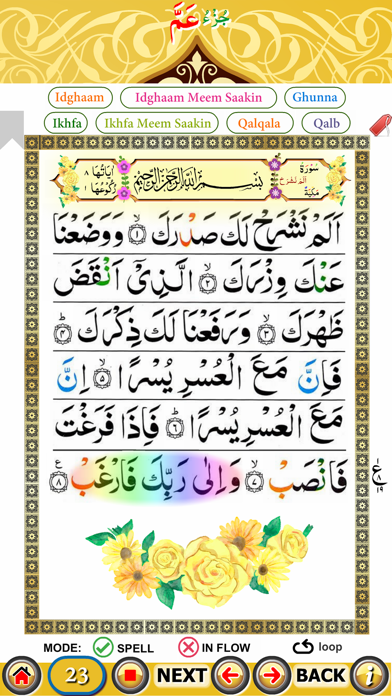 جُزْءُ عَمَّ
Idghaam Idghaam Meem Saakin Ghunna
Ikhfa Ikhfa Meem Saakin Qalqala Qalb
سُوْرَةُ اَلَمْ نَشْرَحْ مَكِّيَّةٌ
بِسْمِ اللهِ الرَّحْمٰنِ الرَّحِيْمِ
اٰيَاتُهَا ٨
رُكُوْعُهَا ١
اَلَمْ نَشْرَحْ لَكَ صَدْرَكَ ۙ﴿١﴾ وَوَضَعْنَا
عَنْكَ وِزْرَكَ ۙ﴿٢﴾ الَّذِیْٓ اَنْقَضَ
ظَهْرَكَ ۙ﴿٣﴾ وَرَفَعْنَا لَكَ ذِكْرَكَ ؕ﴿٤﴾
فَاِنَّ مَعَ الْعُسْرِ يُسْرًا ۙ﴿٥﴾ اِنَّ
مَعَ الْعُسْرِ يُسْرًا ؕ﴿٦﴾ فَاِذَا فَرَغْتَ
فَانْصَبْ ۙ﴿٧﴾ وَاِلٰى رَبِّكَ فَارْغَبْ ﴿٨﴾ ع
MODE: SPELL IN FLOW loop
23 NEXT BACK i